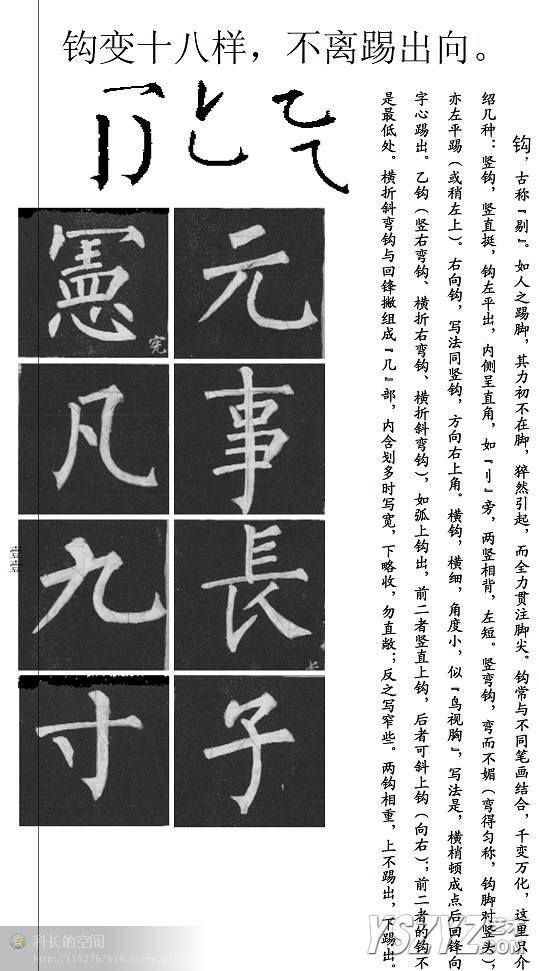 钩变十八样，不离踢出向。
钩，古称『剔』。如人之踢脚，其力初不在脚，猝然引起，而全力贯注脚尖。钩常与不同笔画结合，千变万化，这里只介
绍几种：竖钩，竖直挺，钩左平出，内侧呈直角，如『刂』旁，两竖相背，左短。竖弯钩，弯而不媚（弯得匀称，钩脚对竖头），
亦左平踢（或稍左上）。右向钩，写法同竖钩，方向右上角。横钩，横细，角度小，似『鸟视胸』，写法是，横梢顿成点后回锋向
字心踢出。乙钩（竖右弯钩、横折右弯钩、横折斜弯钩），如弧上钩出，前二者竖直上钩，后者可斜上钩（向右）；前二者的钩不
是最低处。横折斜弯钩与回锋撇组成『几』部，内含划多时写宽，下略收，勿直敞；反之写窄些。两钩相重，上不踢出，下踢出。
元
事
長
长
子
憲
宪
凡
九
寸
壹壹
科长的空间
http://1193767618.qzone.qq.com
YSZYZ